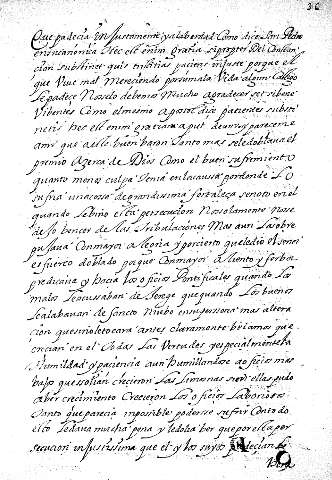 36
Que padecia Injustamente y a la verdad como dize San Pedro
en su canonica Hec est enim gratia si propter Dei Conscien
ciam sustinet quis tristitias patiens injuste porque el
que vive mal mereciendo por su mala Vida algun Castigo
le padece No se lo debemos mucho agradecer ni recibe
como el mesmo apostol dize patientes substi
neris hec est enim gratia apud deum y pareceme
a mi que a elle buen baron santo mas se le doblava el
premio Acerca de Dios como el buen sufrimiento
quanto menos culpa Tenia en la causa por donde Lo
sufria una cosa de grandissima fortaleza se noto en el
quando le bino esta persecucion No solamente No se
de xo bencer de las tribulaciones Mas aun las sobre
puxava Con mayor alegria y por cierto que le dio el señor
esfuerço doblado pa que Con mayor aliento y ferbor
predicaba y hacia los oficios Pontificales quando Los
malos le acussaban de Herege que quando Los buenos
le alababan de sancto Nunca en su persona mas altera
cion que si no le tocara antes claramente biamos que
crecian en el Todas Las Vertudes y especialmente la
humildad y paciencia aun humillandose a oficios mas
bajos que solian crecieron Las Limosnas si en ellas pudo
aber crecimiento Crecieron Los oficios Laboriosos
tanto que parecia impossible poderse sufrir Con todo
ello le dava mucha pena y le dolia ver que por ella per
secucion injustissima que el y los suyos padecian se